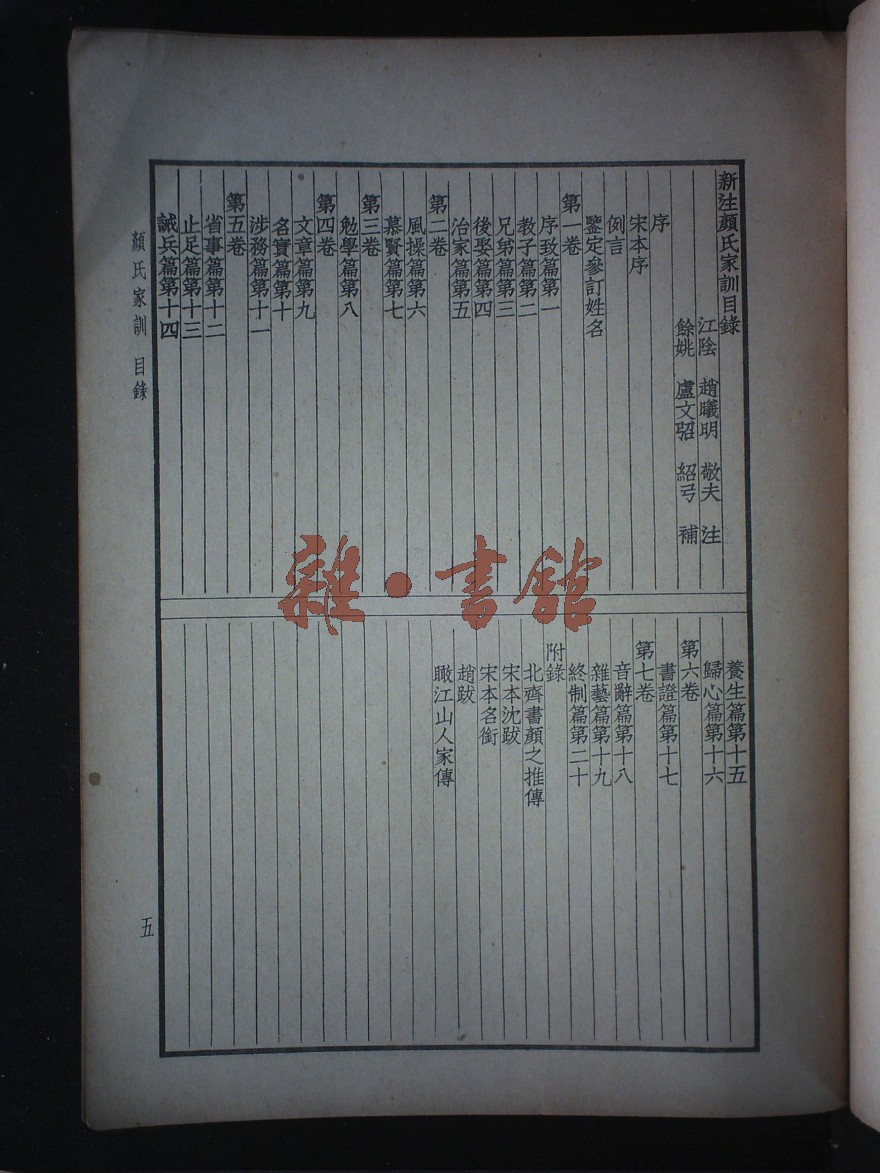 新注顏氏家訓目錄
江陰 趙曦明 敬夫 注
餘姚 盧文弨 紹弓 補
序
宋本序
例言
鑒定參訂姓名
第一卷
序致篇第一
教子篇第二
兄弟篇第三
後娶篇第四
治家篇第五
第二卷
風操篇第六
慕賢篇第七
第三卷
勉學篇第八
第四卷
文章篇第九
名實篇第十
涉務篇第十一
第五卷
省事篇第十二
止足篇第十三
誡兵篇第十四
養生篇第十五
歸心篇第十六
第六卷
書證篇第十七
第七卷
音辭篇第十八
雜藝篇第十九
終制篇第二十
附錄
北齊書顏之推傳
宋本沈跋
宋本名銜
趙跋
瞰江山人家傳
顏氏家訓 目錄
五
雜·書館